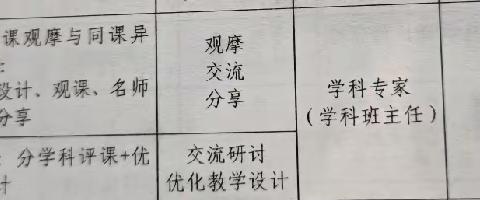 课观摩与同课异
设计、观课、名师
分享
观摩
交流
分享
学科专家
（学科班主任）
：分学科评课+优
计
交流研讨
优化教学设计